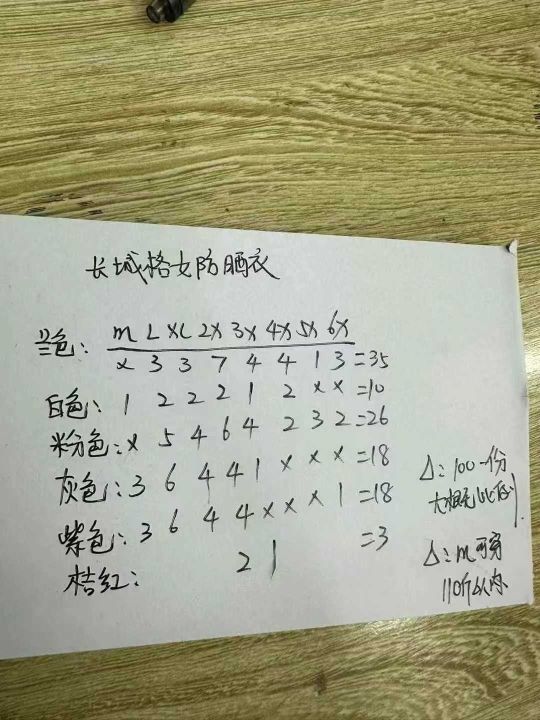 长城格女防晒衣
兰色: m L XL 2X 3X 4X 5X 6X
x 3 3 7 4 4 1 3 =35
白色: 1 2 2 2 1 2 x x =10
粉色: x 5 4 6 4 2 3 2 =26
灰色: 3 6 4 4 1 x x x =18
紫色: 3 6 4 4 x x x 1 =18
桔红: 2 1 =3
△: 100一份
大概无比例
△: m可穿
110斤以内